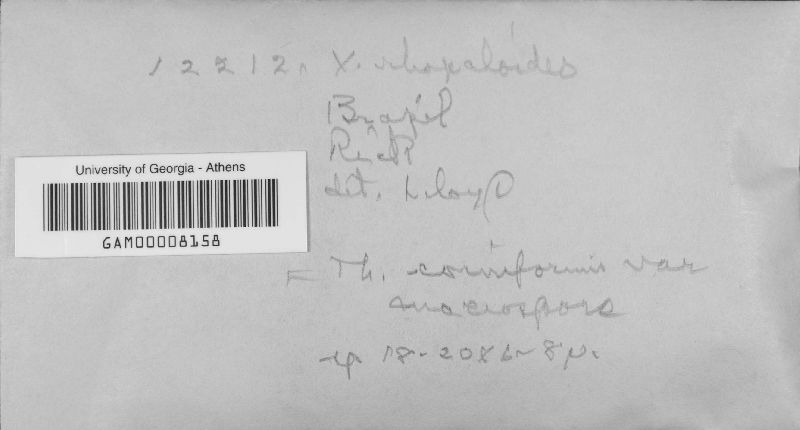 12212. X. rhopaloides
Brazil
Rick
det. Lloyd
University of Georgia - Athens
GAM00008158
= Th. corniformis var
macrospora
sp. 18-20x6-8μ.